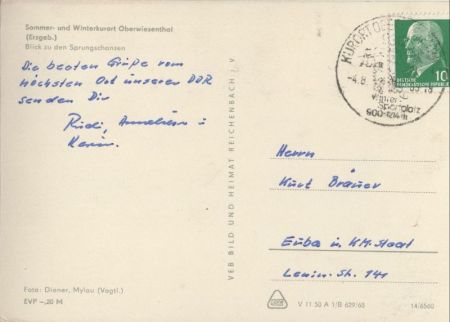 Sommer- und Winterkurort Oberwiesenthal
(Erzgeb.)
Blick zu den Sprungschanzen
Die besten Grüße vom
höchsten Ort unserer DDR
senden Dir
Rudi, Annelies u
Karin.
Foto: Diener, Mylau (Vogtl.)
EVP -,20 M
VEB BILD UND HEIMAT REICHENBACH i. V.
KURORT OBE
-4.8.
Sportplatz
900-1214m
DEUTSCHE
DEMOKRATISCHE REPUBLIK
10
Herrn
Kurt Bräuer
Euba in K.M. Staat
Lenin-Str. 141
V 11 50 A 1/B 629/68
14/6560